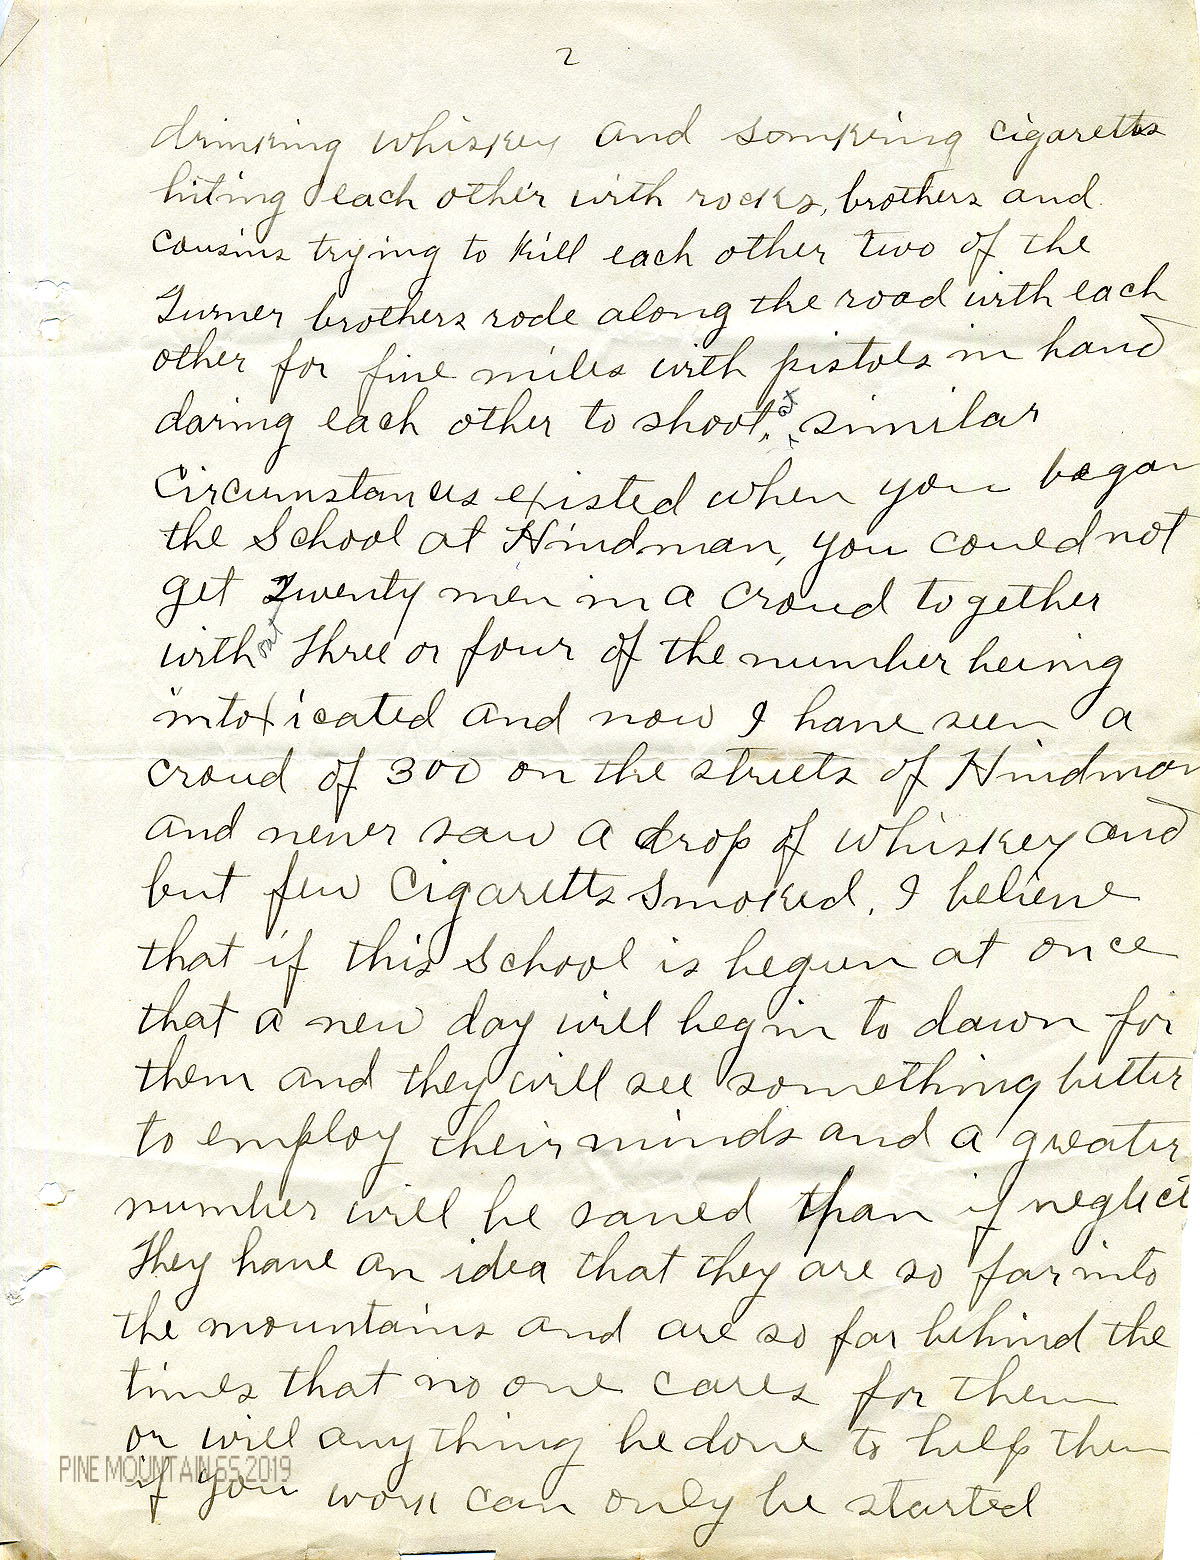 2
drinking whiskey and somking cigaretts
hiting each other with rocks, brothers and
cousins trying to kill each other two of the
Turner brothers rode along the road with each
other for five miles with pistols in hand
daring each other to shoot. similar
Circumstances existed when you began
the School at Hindman, you could not
get Twenty men in a croud together
with out Three or four of the number being
intoxicated and now I have seen a
croud of 300 on the streets of Hindman
and never saw a drop of whiskey and
but few Cigaretts Smoked. I believe
that if this School is begun at once
that a new day will begin to dawn for
them and they will see something better
to employ their minds and a greater
number will be saved than if neglect
They have an idea that they are so far into
the mountains and are so far behind the
times that no one cares for them
or will anything be done to help them
PINE MOUNTAIN SS 2019
if you work can only be started